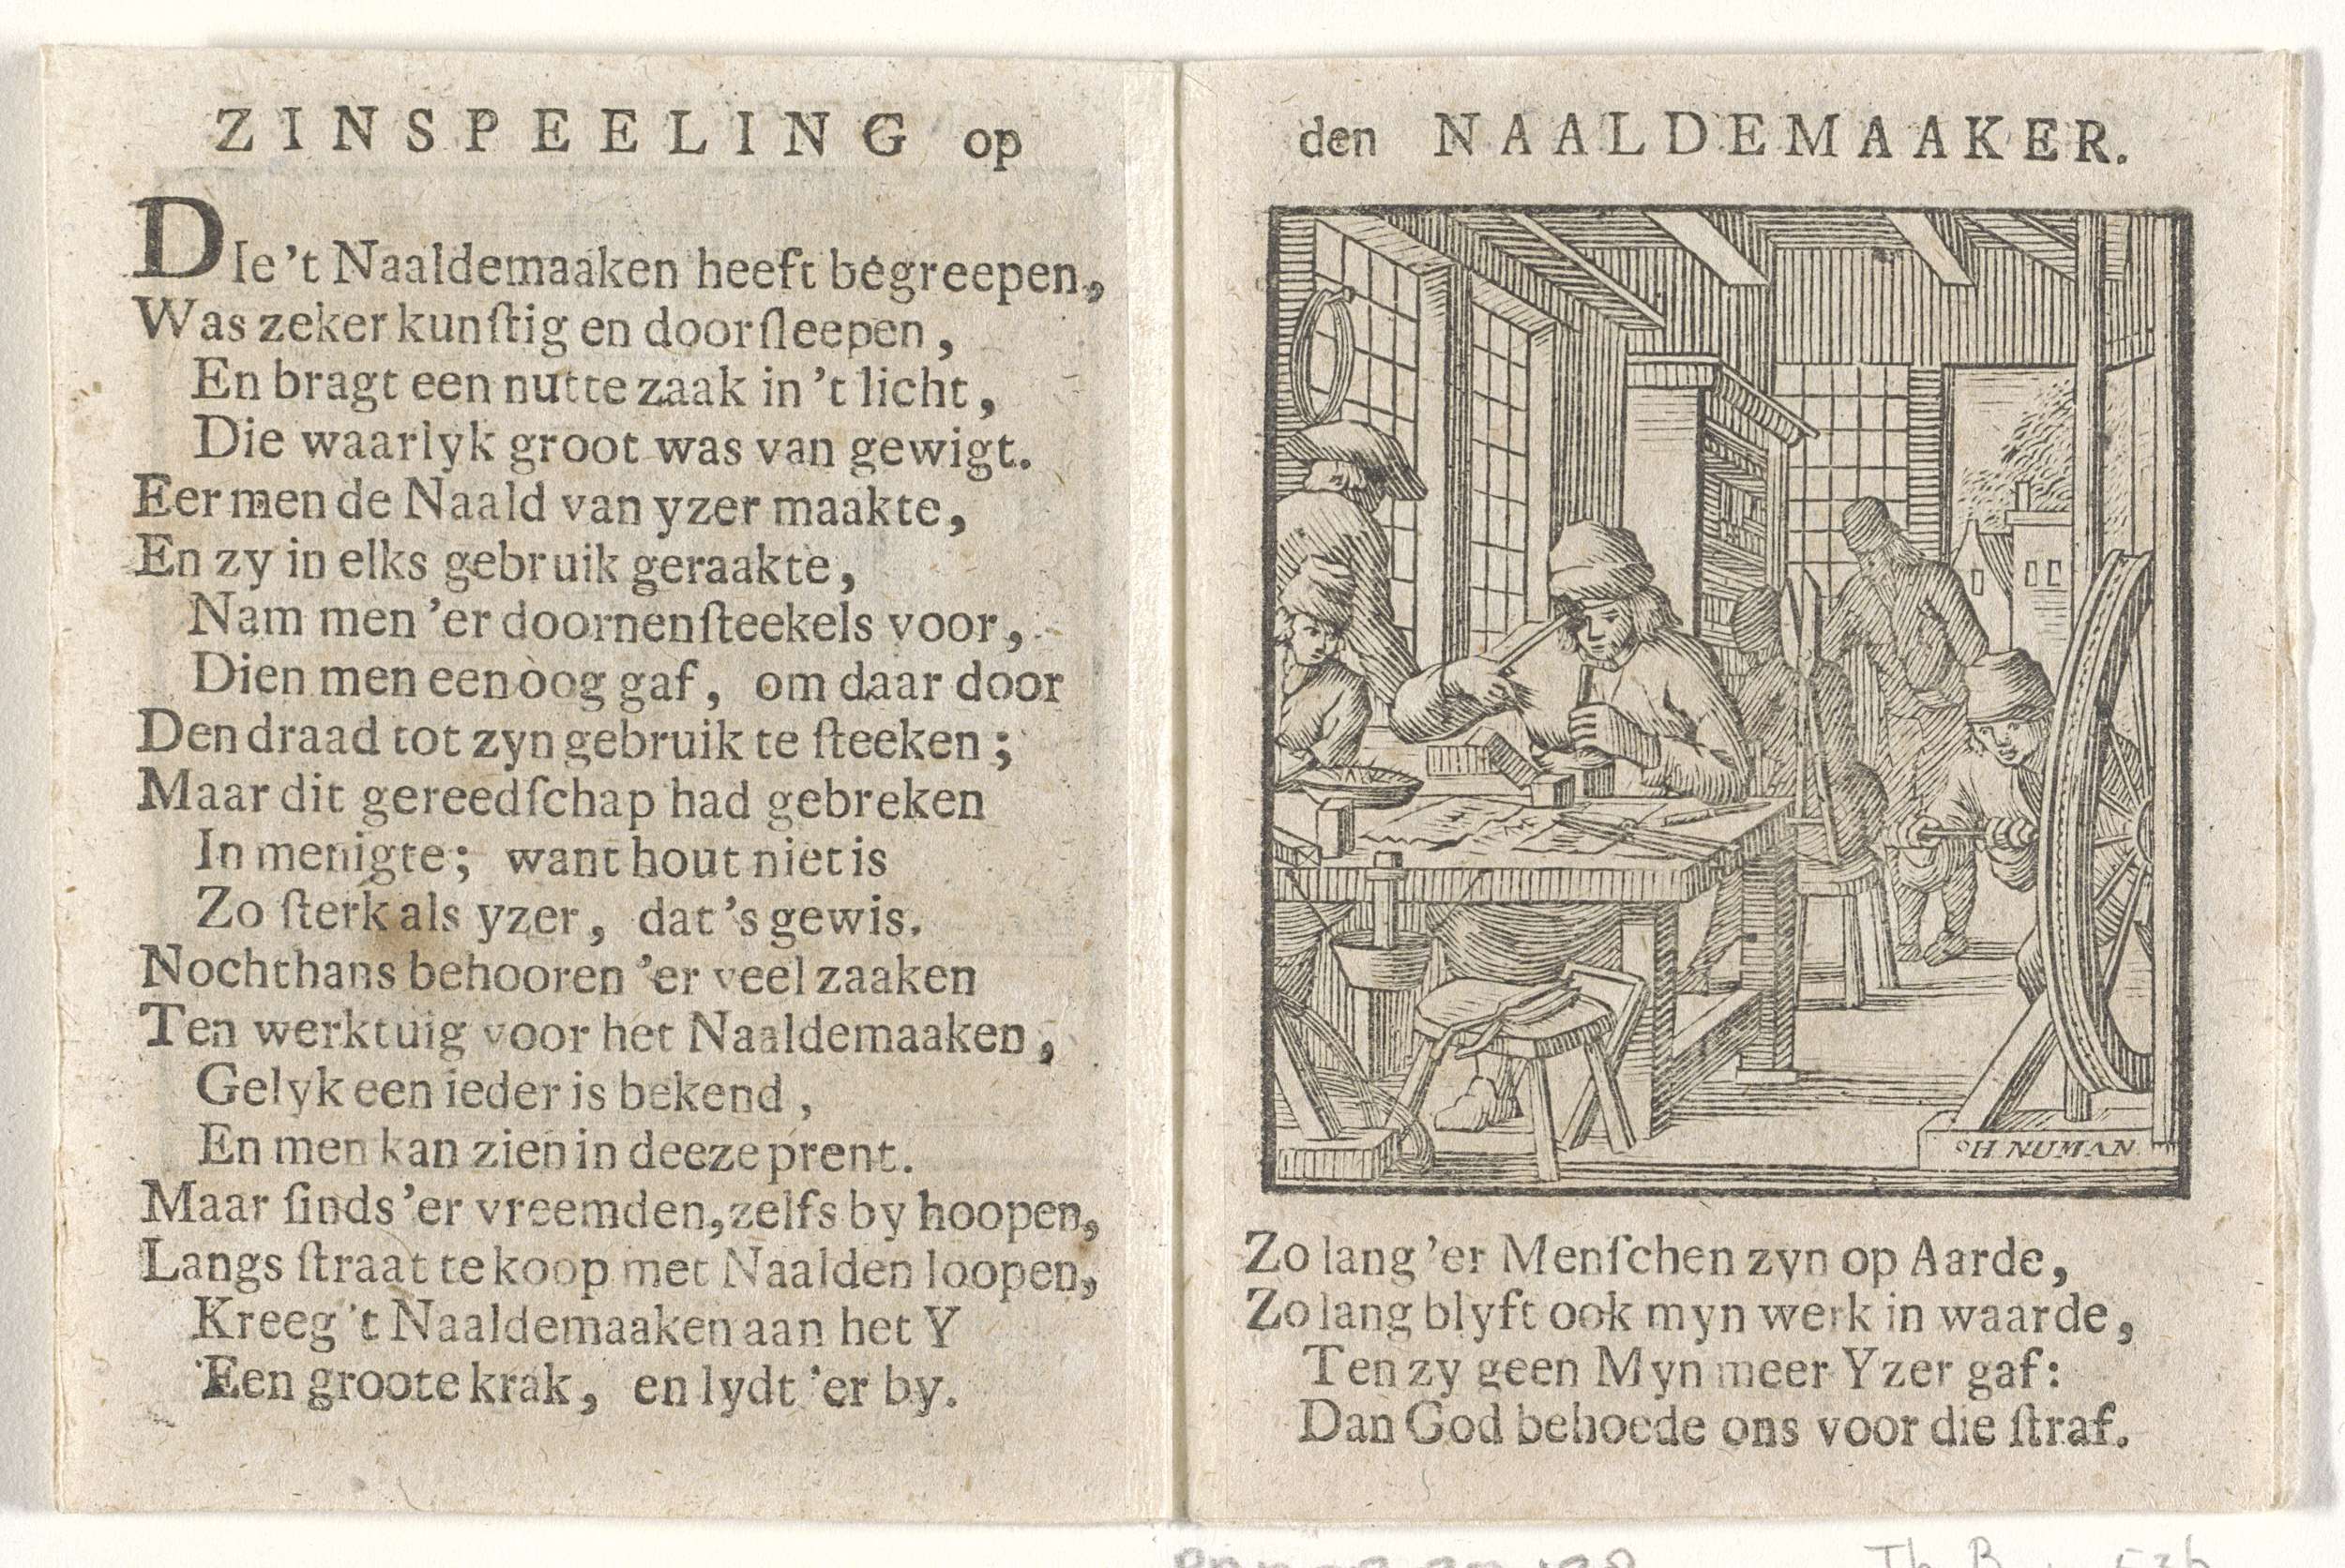 ZINSPEELING op
DIe 't Naaldemaaken heeft begreepen,
Was zeker kunſtig en doorſleepen,
En bragt een nutte zaak in 't licht,
Die waarlyk groot was van gewigt.
Eer men de Naald van yzer maakte,
En zy in elks gebruik geraakte,
Nam men 'er doornenſteekels voor,
Dien men een oog gaf, om daar door
Den draad tot zyn gebruik te ſteeken;
Maar dit gereedſchap had gebreken
In menigte; want hout niet is
Zo ſterk als yzer, dat 's gewis.
Nochthans behooren 'er veel zaaken
Ten werktuig voor het Naaldemaaken,
Gelyk een ieder is bekend,
En men kan zien in deeze prent.
Maar ſinds 'er vreemden, zelfs by hoopen,
Langs ſtraat te koop met Naalden loopen,
Kreeg 't Naaldemaaken aan het Y
Een groote krak, en lydt 'er by.
den NAALDEMAAKER.
H NUMAN
Zo lang 'er Menſchen zyn op Aarde,
Zo lang blyft ook myn werk in waarde,
Ten zy geen Myn meer Yzer gaf:
Dan God behoede ons voor die ſtraf.